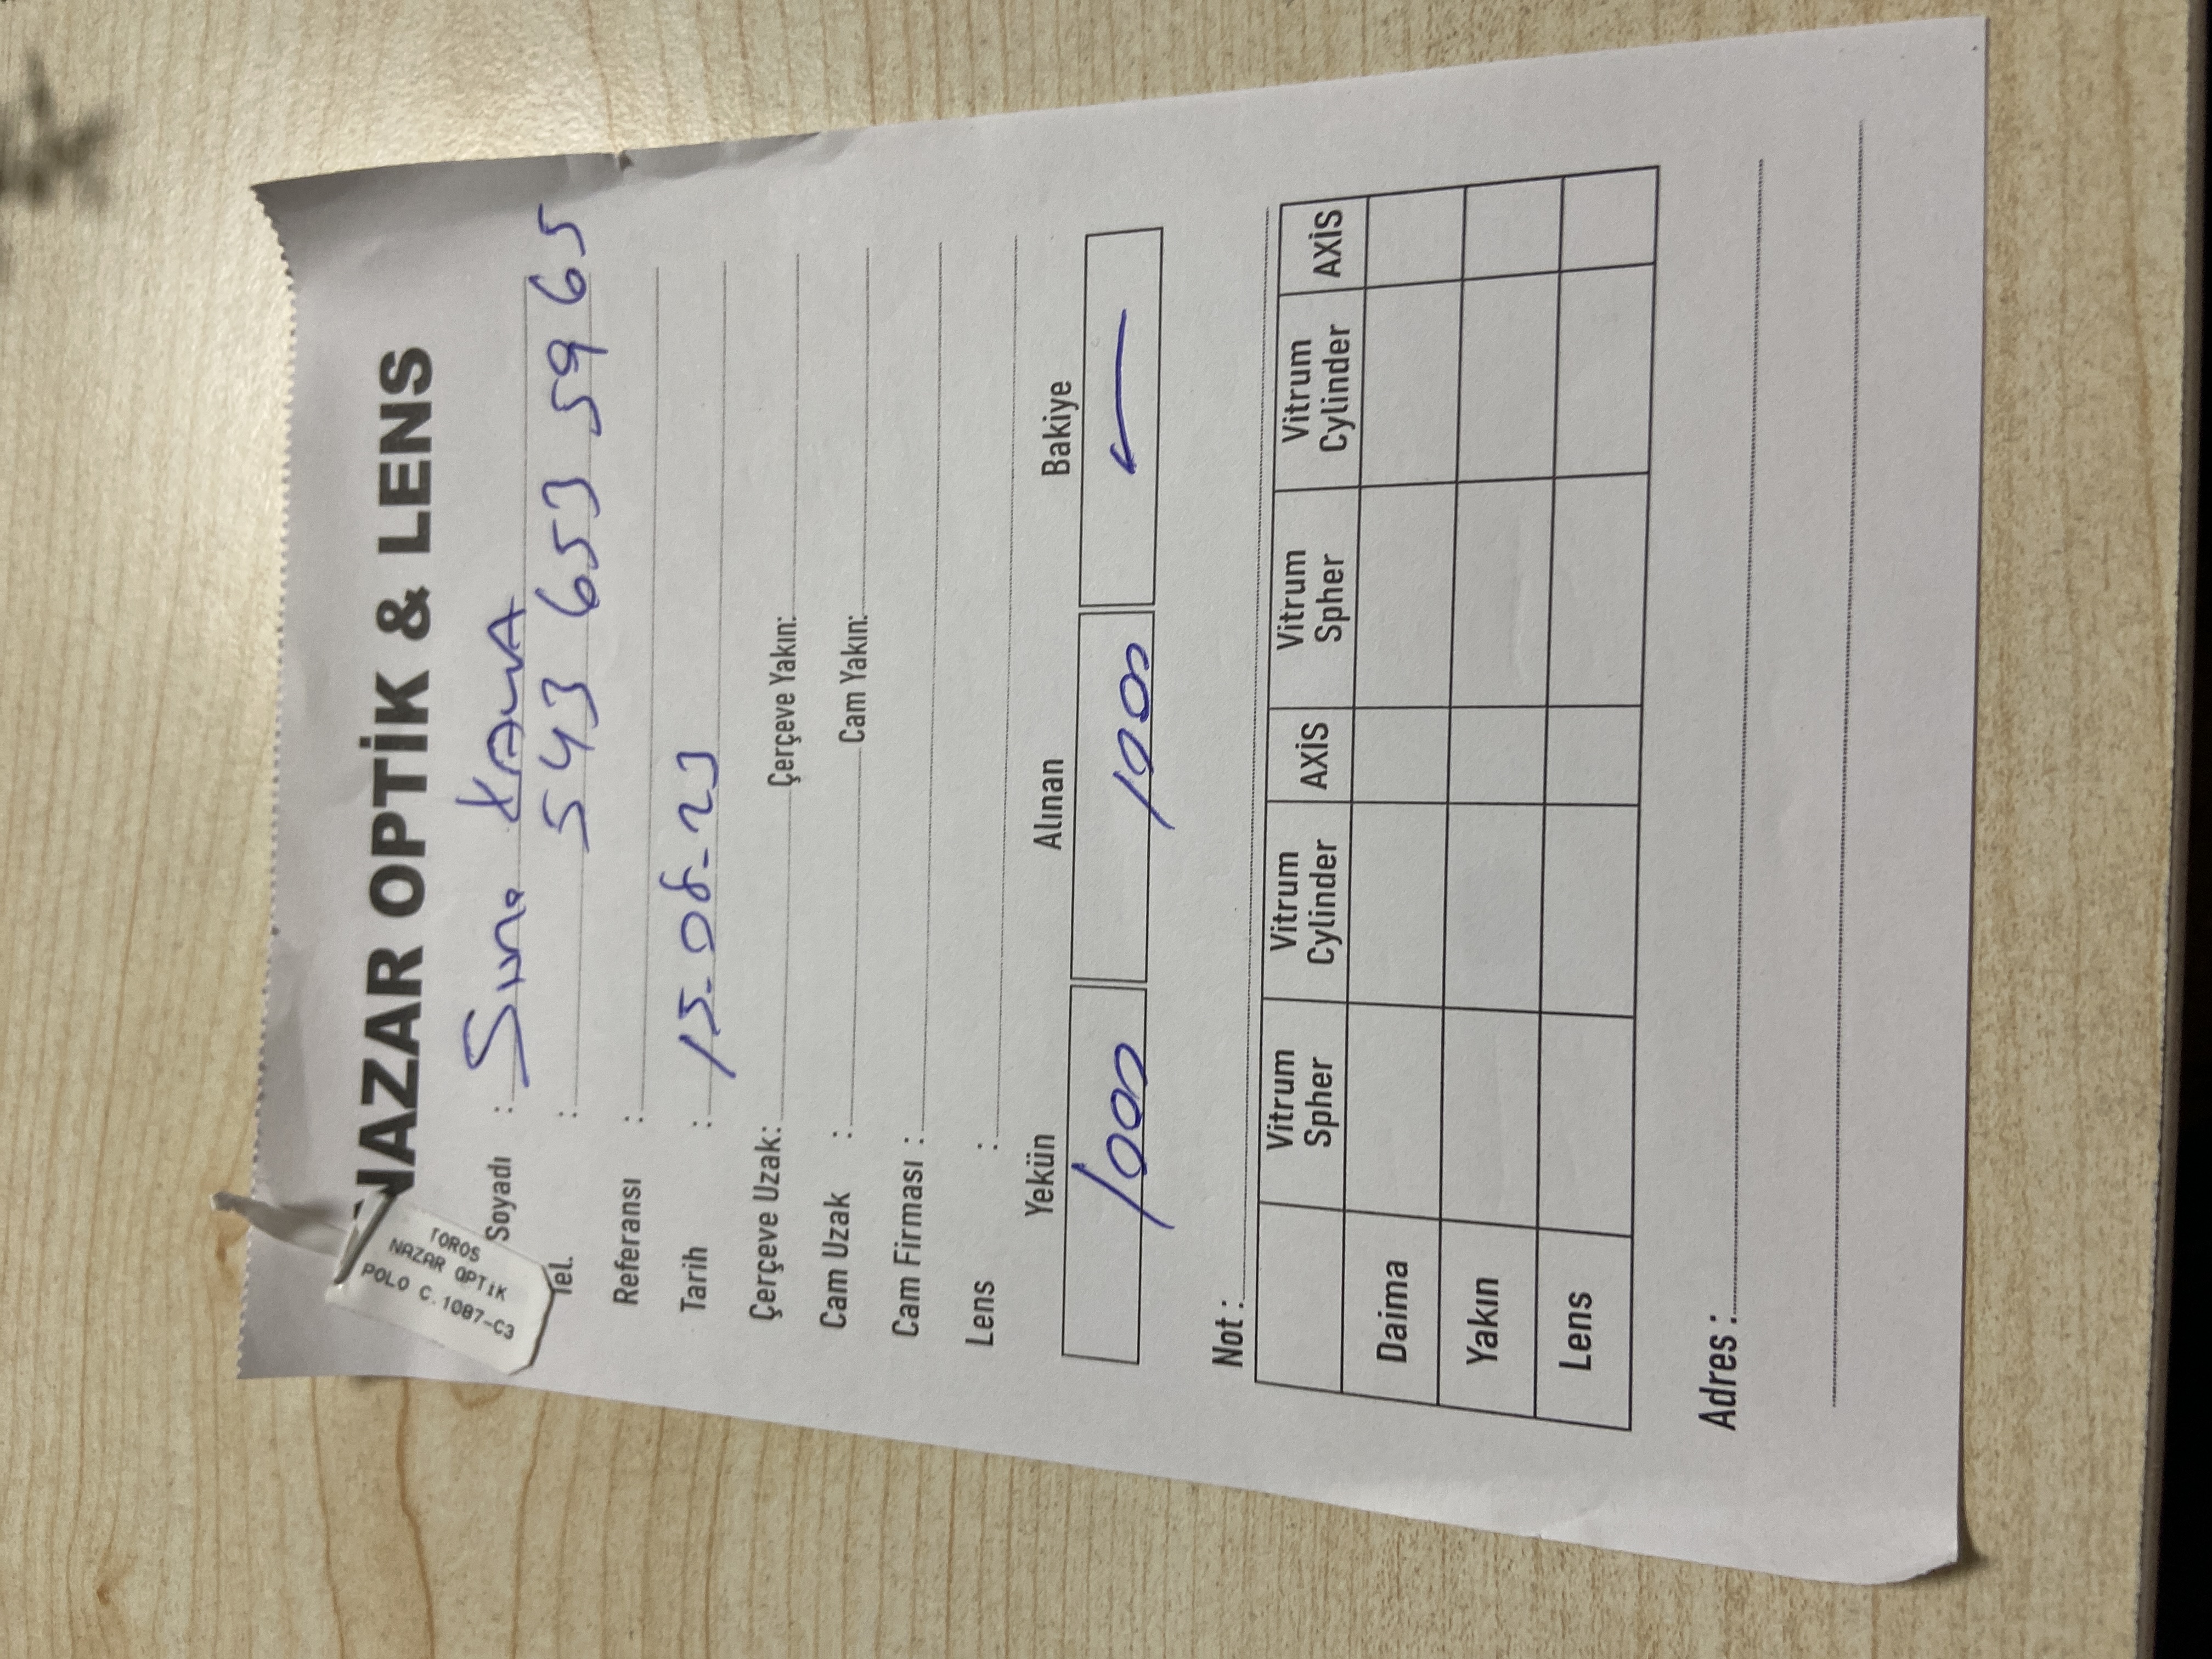 NAZAR OPTİK & LENS
TOROS
NAZAR OPTIK
POLO C.1087-C3
Soyadı :
Tel. : 543 653 59 65
Referansı :
Tarih : 15-08-23
Çerçeve Uzak: Çerçeve Yakın:
Cam Uzak : Cam Yakın:
Cam Firması :
Lens :
Yekün Alınan Bakiye
1000 1000
Not :
Vitrum Spher Vitrum Cylinder AXİS Vitrum Spher Vitrum Cylinder AXİS
Daima
Yakın
Lens
Adres :